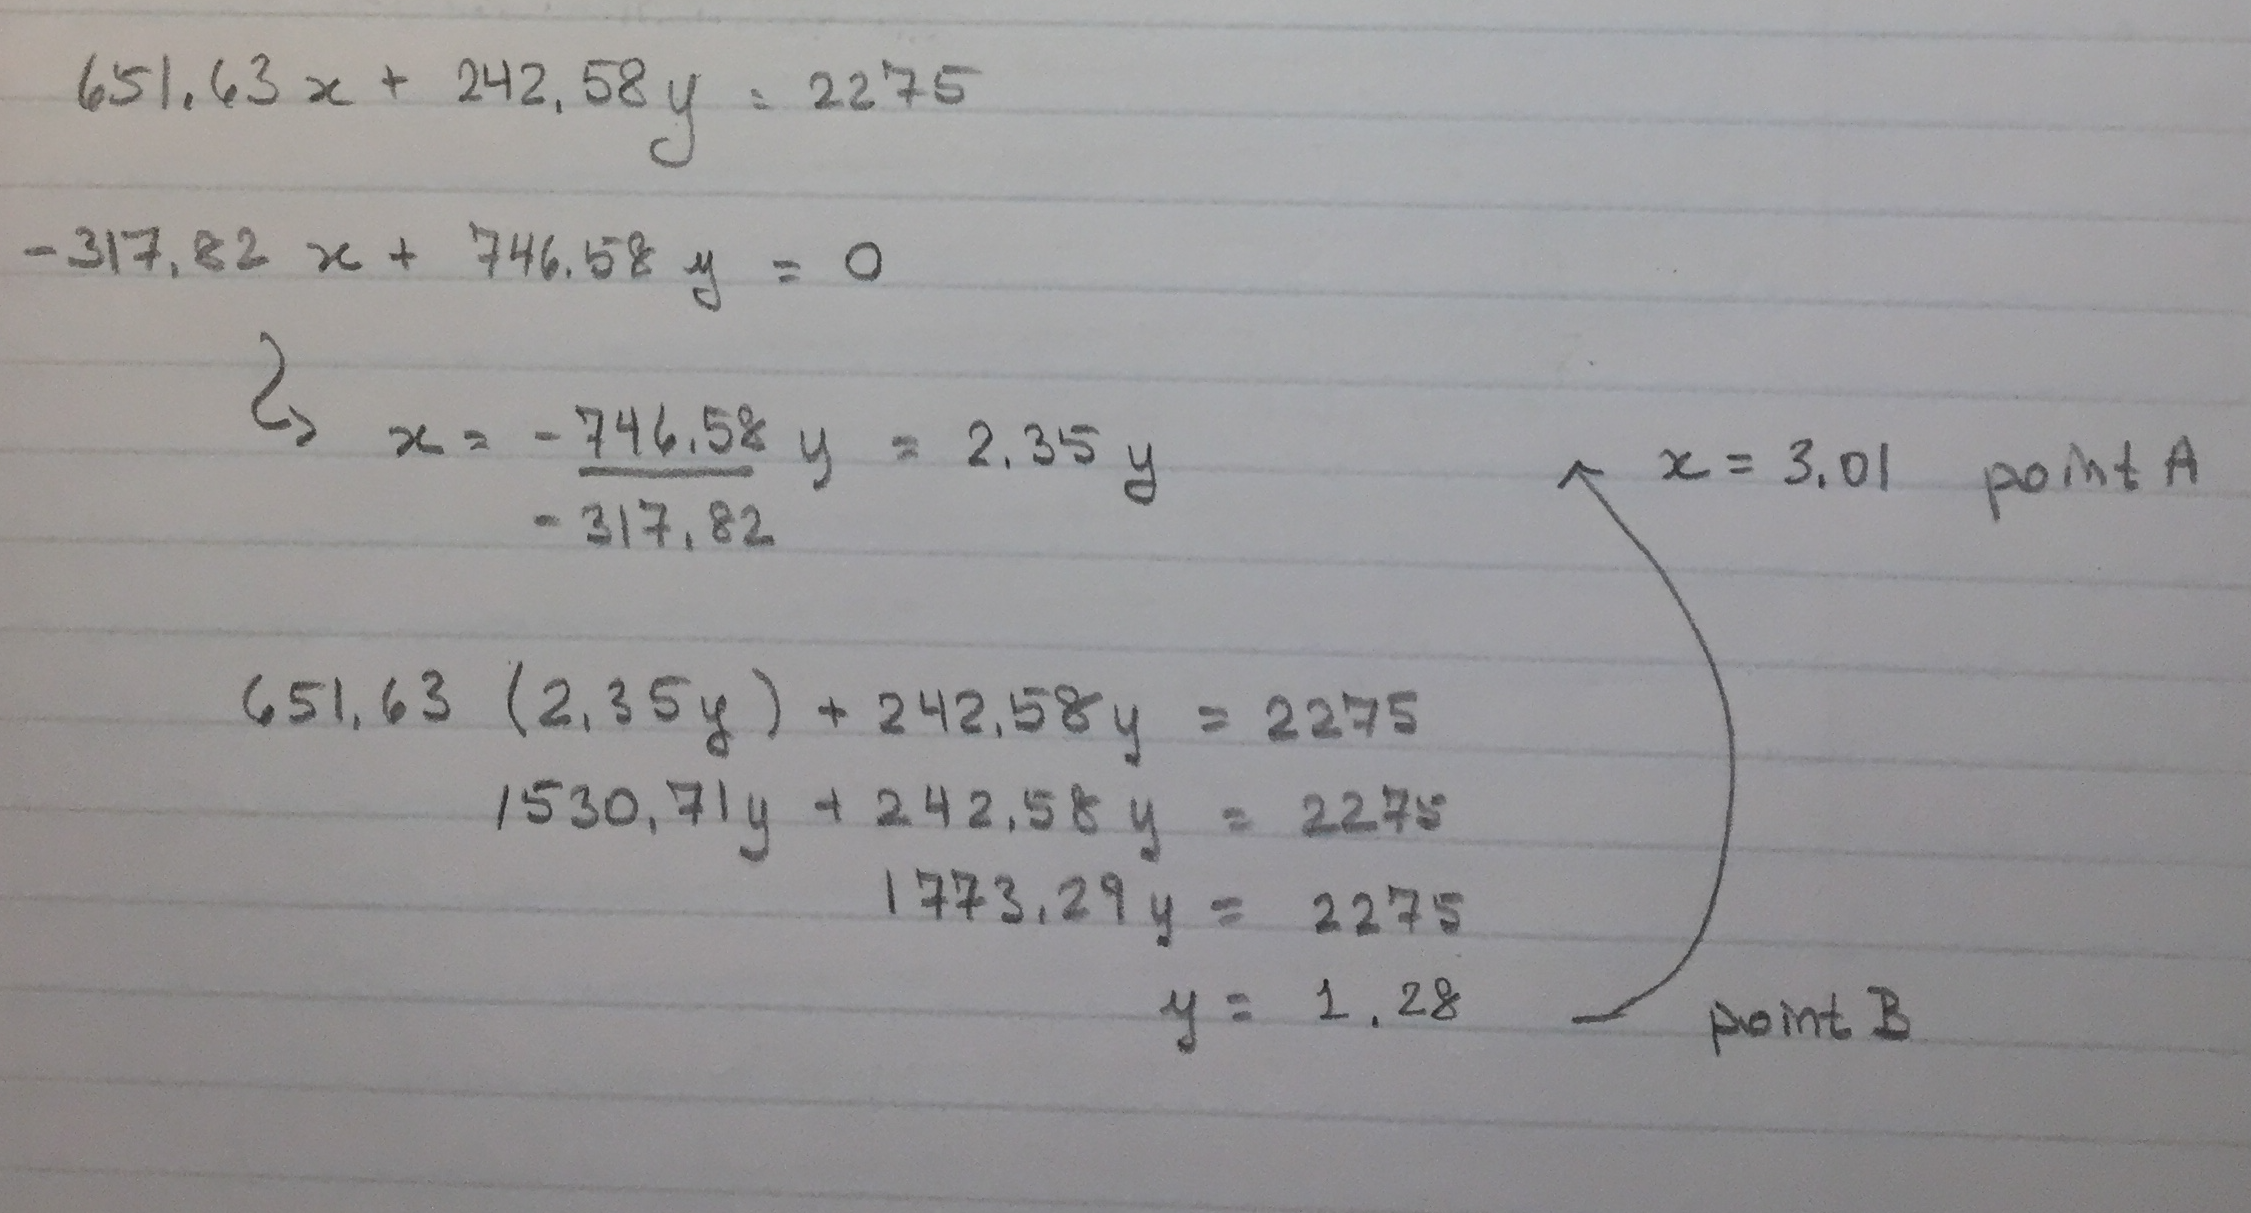 651.63 x + 242.58 y = 2275
-317.82 x + 746.58 y = 0
x = -746.58 y = 2.35 y
-317.82
x = 3.01 point A
651.63 (2.35y) + 242.58y = 2275
1530.71y + 242.58 y = 2275
1773.29 y = 2275
y = 1.28 point B